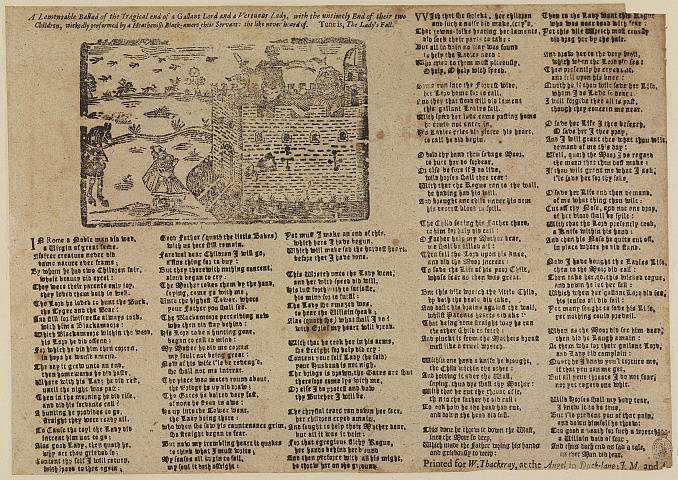 A Lamentable Ballad of the Tragical end of a Gallant Lord and a Vertuous Lady, with the untimely End of their two
Children, wickedly performed by a Heathenish Black-amore their Servant: the like never heard of. Tune is, The Lady's Fall.
IN Rome a Noble man did wed,
a Virgin of great fame,
A fairer creature never did
dame nature ever frame,
By whom he had two Children fair,
whose beauty did excel
They were their parents only joy,
they loved them both so well.
The Lord he loved to hunt the Buck,
the Tygre and the Boar:
And still for swiftness always took
with him a Blackamoor:
Which Blackamoor within the wood,
his Lord he did offend:
For which he did him then correct,
in hopes he would amend.
The day it grew unto an end,
then homewards he did hast,
Where with his Lady he did rest,
until the night was past:
Then in the morning he did rise,
and did his servants call
A hunting he provides to go,
straight they were ready all.
To Cause the toyl the Lady did
intreat him not to go:
Alas good Lady, then quoth he,
why art thou grieved so:
Content thy self I will return,
with speed to thee again,
Good Father (quoth the little Babes)
with us here still remain.
Farewel dear Children I will go,
a fine thing for to buy:
But they therewith nothing content,
aloud began to cry
The Mother takes them by the hand,
saying, come go with me,
Unto the highest Tower, where
your Father you shall see.
The Blackamoor perceiving now
who then did stay behind:
His Lord to be a hunting gone
began to call to mind:
My Master he did me correct
my fault not being great:
Now of his wife I'le be reveng'd,
she shall not me intreat.
The place was moted round about,
the bridge he up did draw:
The Gates he bolted very fast,
of none he stood in awe:
He up into the Tower went,
the Lady being there:
who when she saw his countenance grim,
she straight began to fear.
But now my trembling heart it quakes
to think what I must write:
My senses all begin to fail,
my soul it doth affright:
Yet must I make an end of this,
which here I have begun,
Which will make sad the hardest heart,
before that I have done.
This Wretch unto the Lady went,
and her with speed did will,
His lust forthwith to satisfie,
his mind for to fulfil:
The Lady she amazed was,
to hear the Villain speak,
Alas (quoth she) what shall I do?
with Grief my heart will break.
With that he took her in his arms,
she straight for help did cry:
Content your self Lady (he said)
your Husband is not nigh,
The bridge is drawn, the Gates are shut
therefore come lye with me,
Or else I do protest and vow
thy Butcher I will be.
The chrystal tears ran down her face,
her children cryed amain,
And sought to help their Mother dear,
but all it was in vain:
For that egregious filthy Rogue,
her hands behind her bound
And then perforce with all his might,
he threw her on the ground.
With that she shriekt, her children
and such a noise did make,
That towns-folks hearing her laments,
did seek their parts to take:
But all in vain no way was found
to help the Ladies need:
Who cryed to them most piteously,
O help, O help with speed.
Some run into the Forrest wide,
her Lord home for to call,
And they that stood still did lament
this gallant Ladies fall.
With speed her Lord came posting home
he could not enter in,
His Ladies cries did pierce his heart,
to call he did begin.
O hold thy hand thou savage Moor,
to hurt her do forbear,
Or else be sure if I do live,
wild horses shall thee tear:
With that the Rogue ran to the wall,
he having had his will,
And brought one child under his arm
his dearest blood to spill.
The Child seeing his Father there,
to him for help did call:
O Father help my Mother dear,
we shall be killed all:
Then fell the Lord upon his knee,
and did the Moor intreat
To save the Life of this poor Child,
whose fear as then was great.
But this vile wretch the little Child,
by both the heels did take,
And dasht his brains against the wall,
whilst Parents hearts did ake:
That being done straight way he ran
the other Child to fetch
And pluckt it from the Mothers breast
most like a cruel wretch.
Within one hand a knife he brought,
the Child within the other:
And holding it over the Wall,
saying, thus dye shall thy Mother:
With that he cut the throat of it,
then to the Father he did call:
To look how he the head had cut,
and down the head did fall.
This done he threw it down the Wall,
into the Mote so deep,
Which made the Father wring his hands
and grievously to weep:
Then to the Lady went this Rogue
who was near dead with fear:
Yet this vile Wretch most cruelly
did drag her by the hair.
And drew her to the very wall,
which when the Lord did see:
Then presently he cryed out,
and fell upon his knee:
Quoth he if thou wilt save her Life,
whom I do Love so dear:
I will forgive thee all is past,
though they concern me near.
O save her Life I thee beseech,
O save her I thee pray,
And I will grant thee what thou wilt,
demand of me this day:
Well, quoth the Moor I do regard
the moan that thou dost make:
If thou wilt grant me what I ask,
I'le save her for thy sake.
O save her Life and then demand,
of me what thing thou wilt:
Cut off thy Nose, and not one drop,
of her blood shall be spilt:
With that the Lord presently took,
a Knife within his hand:
And then his Nose he quite cut off,
in place where he did stand.
Now I have bought the Ladies Life,
then to the Moor did call:
Then take her, quoth this wicked rogue,
and down he let her fall:
Which when her gallant Lord did see,
his senses all did fail:
Yet many sought to save his Life,
yet nothing could prevail.
When as the Moor did see him dead,
then did he laugh amain:
At them who for their gallant Lord,
and Lady did complain:
Quoth he I know you'l torture me,
if that you can me get,
But all your threats I do not fear,
nor yet regard one whit.
Wild Horses shall my body tear,
I know it to be true,
But I'le prevent you of that pain,
and down himself he threw:
Too good a death for such a wretch,
a Villain void of fear,
And thus doth end as sad a tale,
as ever man did hear.
Printed for W. Thackeray, at the Angel in Duck-lane; J. M. and